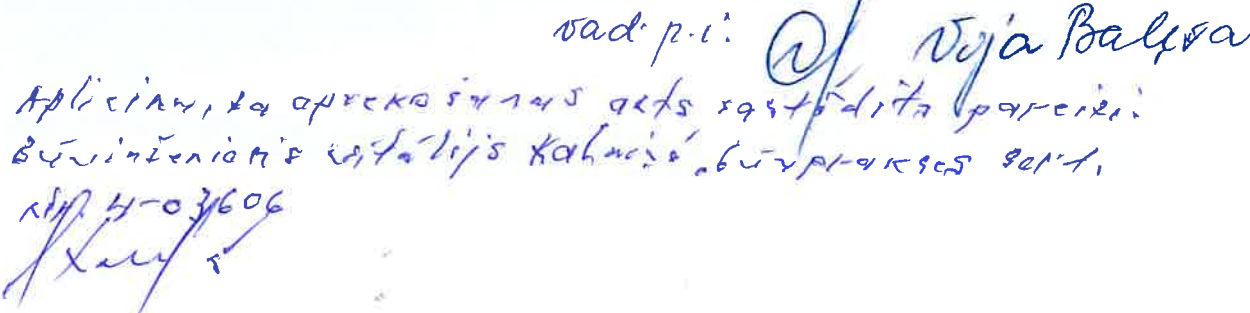 vad. p. i. Vija Balgva
Apliecinu, ka apsekošanas akts sastādīts pareizi.
Būvinženieris Vitālijs Kalniņš, būvprakses sert.
Nr. 4-03606